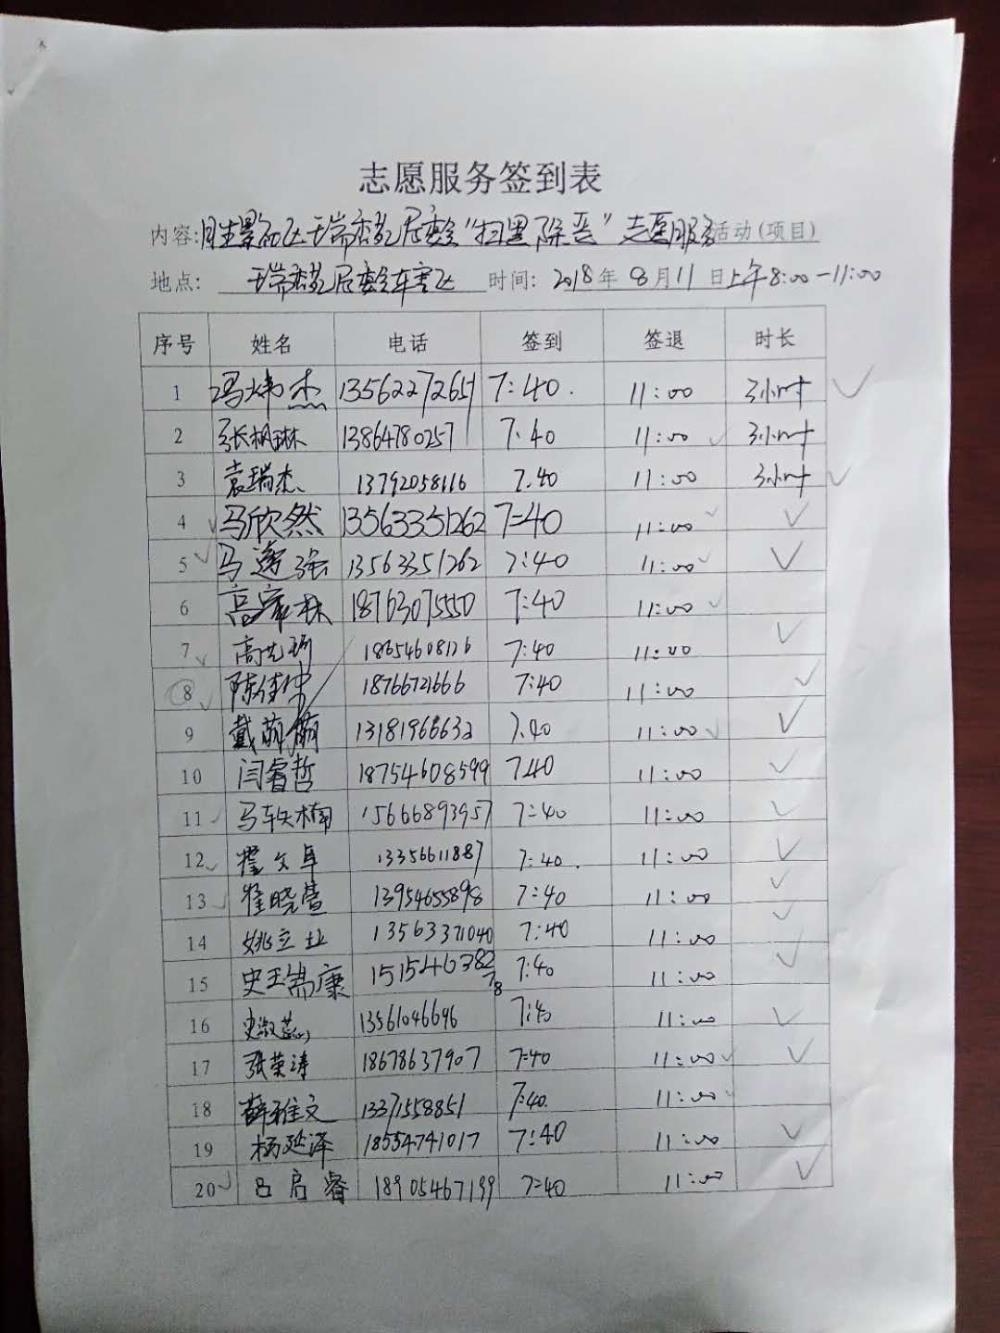 志愿服务签到表
内容: "扫黑除恶"志愿服务活动(项目)
地点: 时间: 2018年8月11日上午8:00-11:00
序号 姓名 电话 签到 签退 时长
1 冯炜杰 7:40. 11:00 3小时
2 张枫琳 13864780257 7.40 11:00 3小时
3 袁瑞杰 13792058116 7.40 11:00 3小时
4 马欣然 13563351262 7=40 11:00
5 马莲强 13563351262 7:40 11:00
6 18763075550 7:40 11:00
7 18654608126 7:40 11:00
8 18766721666 7:40 11:00
9 戴萌萌 13181966632 7.40 11:00
10 闫睿哲 18754608599 7.40 11:00
11 马轶楠 15666893957 7=40 11:00
12 13356611887 7:40. 11:00
13 崔晓萱 13954655898 7:40 11:00
14 姚立业 13563371040 7:40 11:00
15 史玉嵩康 7:40 11:00
16 13561046696 7:40 11:00
17 张荣涛 18678637907 7:40 11:00
18 薛雅文 13371558851 7:40. 11:00
19 杨延泽 18554741017 7:40 11:00
20 吕启睿 18905467199 7=40 11:00